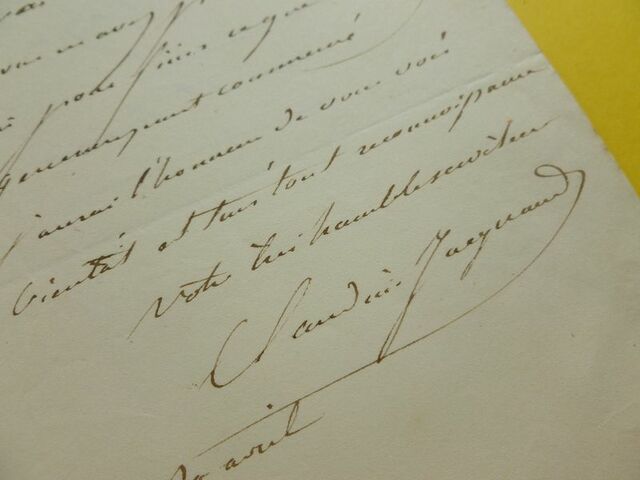 vous m'avez
pour finir ce que
généreusement commencé
j'aurai l'honneur de vous voir
bientôt et suis tout reconnaissant
votre très humble serviteur
Claudius Jacquand
avril